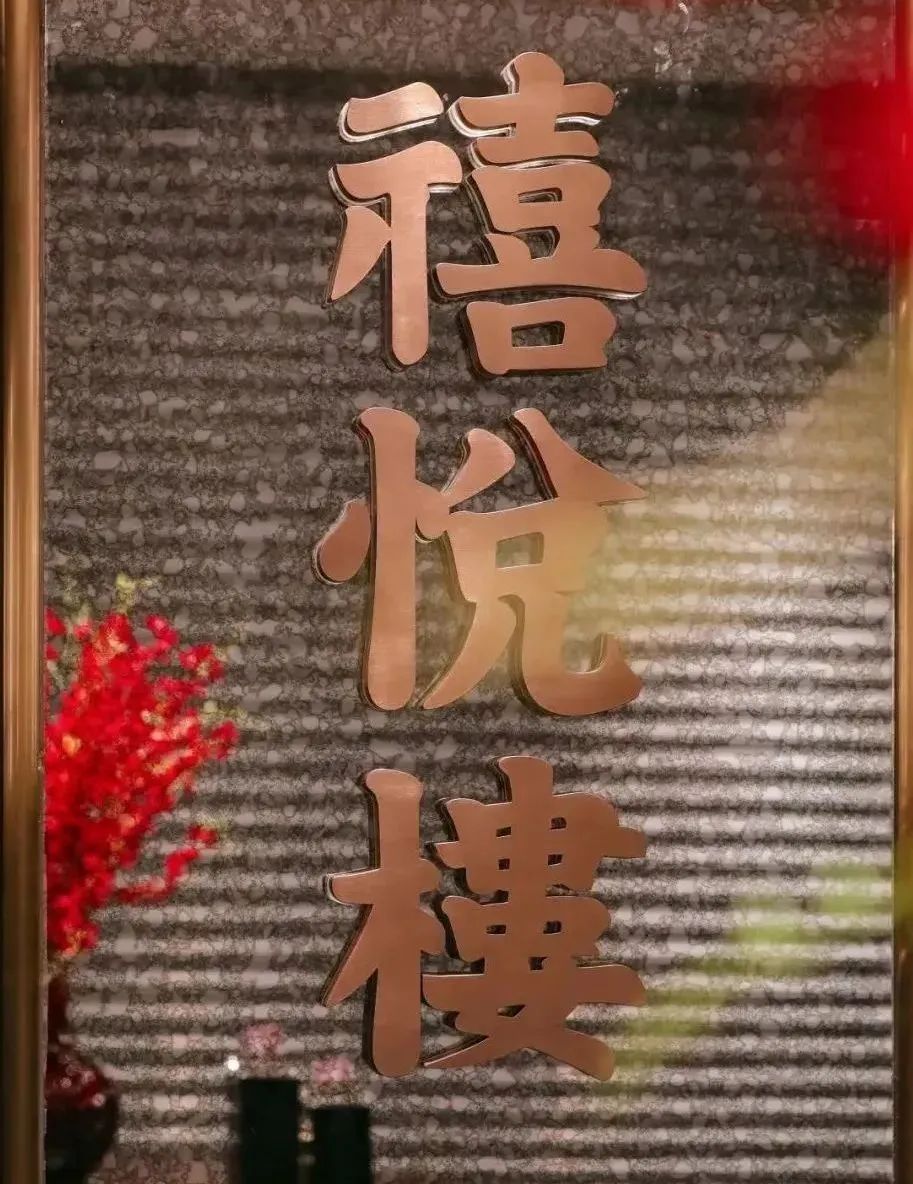 禧悅樓